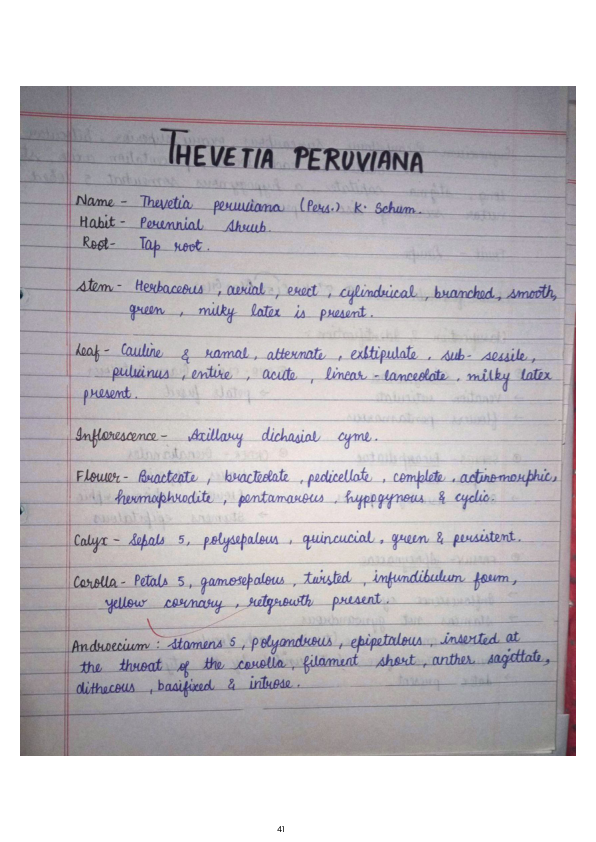 THEVETIA PERUVIANA
Name - Thevetia peruviana (Pers.) K. Schum.
Habit - Perennial shrub.
Root- Tap root.
Stem - Herbaceous, aerial, erect, cylindrical, branched, smooth,
green, milky latex is present.
Leaf - Cauline & ramal, alternate, exstipulate, sub-sessile,
pulvinus, entire, acute, lincar-lanceolate, milky latex
present.
Inflorescence - Axillary dichasial cyme.
Flower - Bracteate, bracteolate, pedicellate, complete, actinomorphic,
hermaphrodite, pentamarous, hypogynous & cyclic.
Calyx - Sepals 5, polysepalous, quincucial, green & persistent.
Corolla - Petals 5, gamosepalous, twisted, infundibulum form,
yellow cornary, retgrowth present.
Androecium : Stamens 5, polyandrous, epipetalous, inserted at
the throat of the corolla, filament short, anther sagittate,
dithecous, basifixed & introse.
41